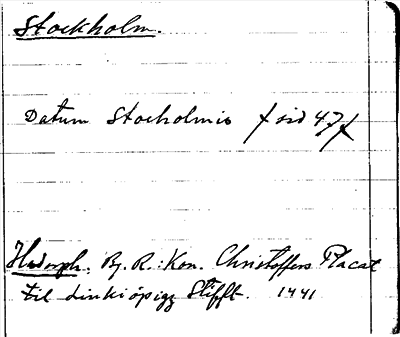 Stockholm.
Datum Stocholmis / sid 47/
Hadorph. Bj. R. Kon. Christoffers Placat
til Linkiöpigz Stifft. 1441